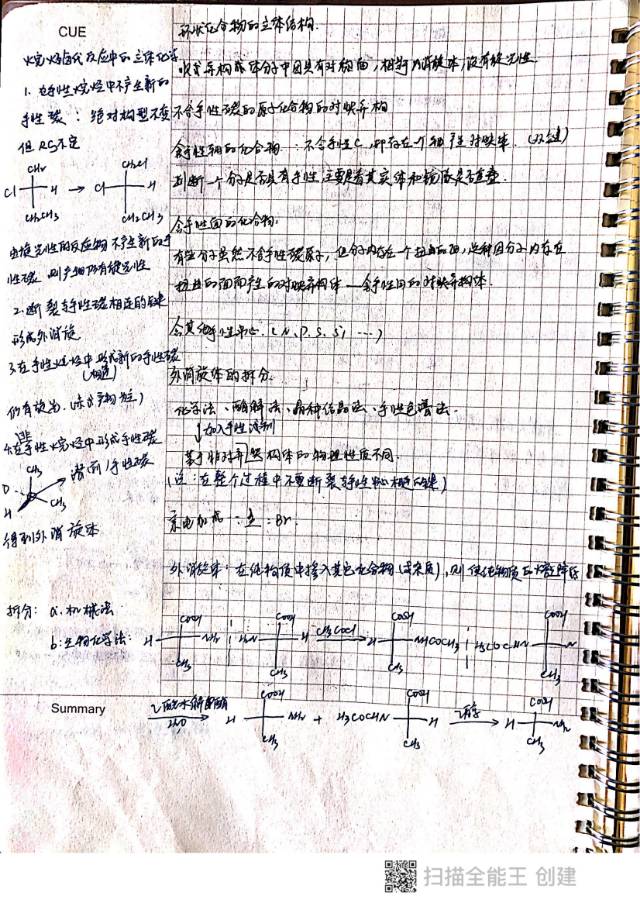 CUE
烷烃卤代反应中的立体化学
1. 在手性烷烃中不产生新的
手性碳：绝对构型不变
但RS不定
Cl H → Cl H
CH2CH3 CH2CH3
由旋光性的反应物不产生新的手
性碳，则产物仍有旋光性
2. 断裂与手性碳相连的键
形成外消旋
3. 在手性烷烃中形成新的手性碳
仍有旋光
4. 在非手性烷烃中形成手性碳
CH3
D 潜 手性碳
H CH3
得到外消旋体
环状化合物的立体结构.
顺式异构体分子中因具有对称面，相当内消旋体，没有旋光性
不含手性碳的原子化合物的对映异构
含手性轴的化合物：不含手性C，却存在一个轴产生对映体.（双键）
判断一个分子是否具有手性主要是看其实体和镜像是否重叠.
含手性面的化合物:
有些分子虽然不含手性碳原子，但分子内存在一个扭曲的面，这种因分子内存在
扭曲的面而产生的对映异构体—含手性面的对映异构体.
含其他手性中心.（N、P、S、Si ……）
外消旋体的拆分.
化学法、酶解法、晶种结晶法、手性色谱法.
↓加入手性溶剂
基于非对异构体的物理性质不同.
（注：在整个过程中不要断裂与手性中心相连的键）
外消旋体：在纯物质中掺入其它化合物（或杂质），则使纯物质的熔点降低
拆分：a.机械法
b.生物化学法：
COOH COOH COOH COOH
H NH2 H2N H CH3COCl → H NHCOCH3 H3COCHN
CH3 CH3 CH3 CH3
Summary
H2O → COOH COOH COOH
H NH2 + H3COCHN H → H NH2
CH3 CH3 CH3
扫描全能王 创建